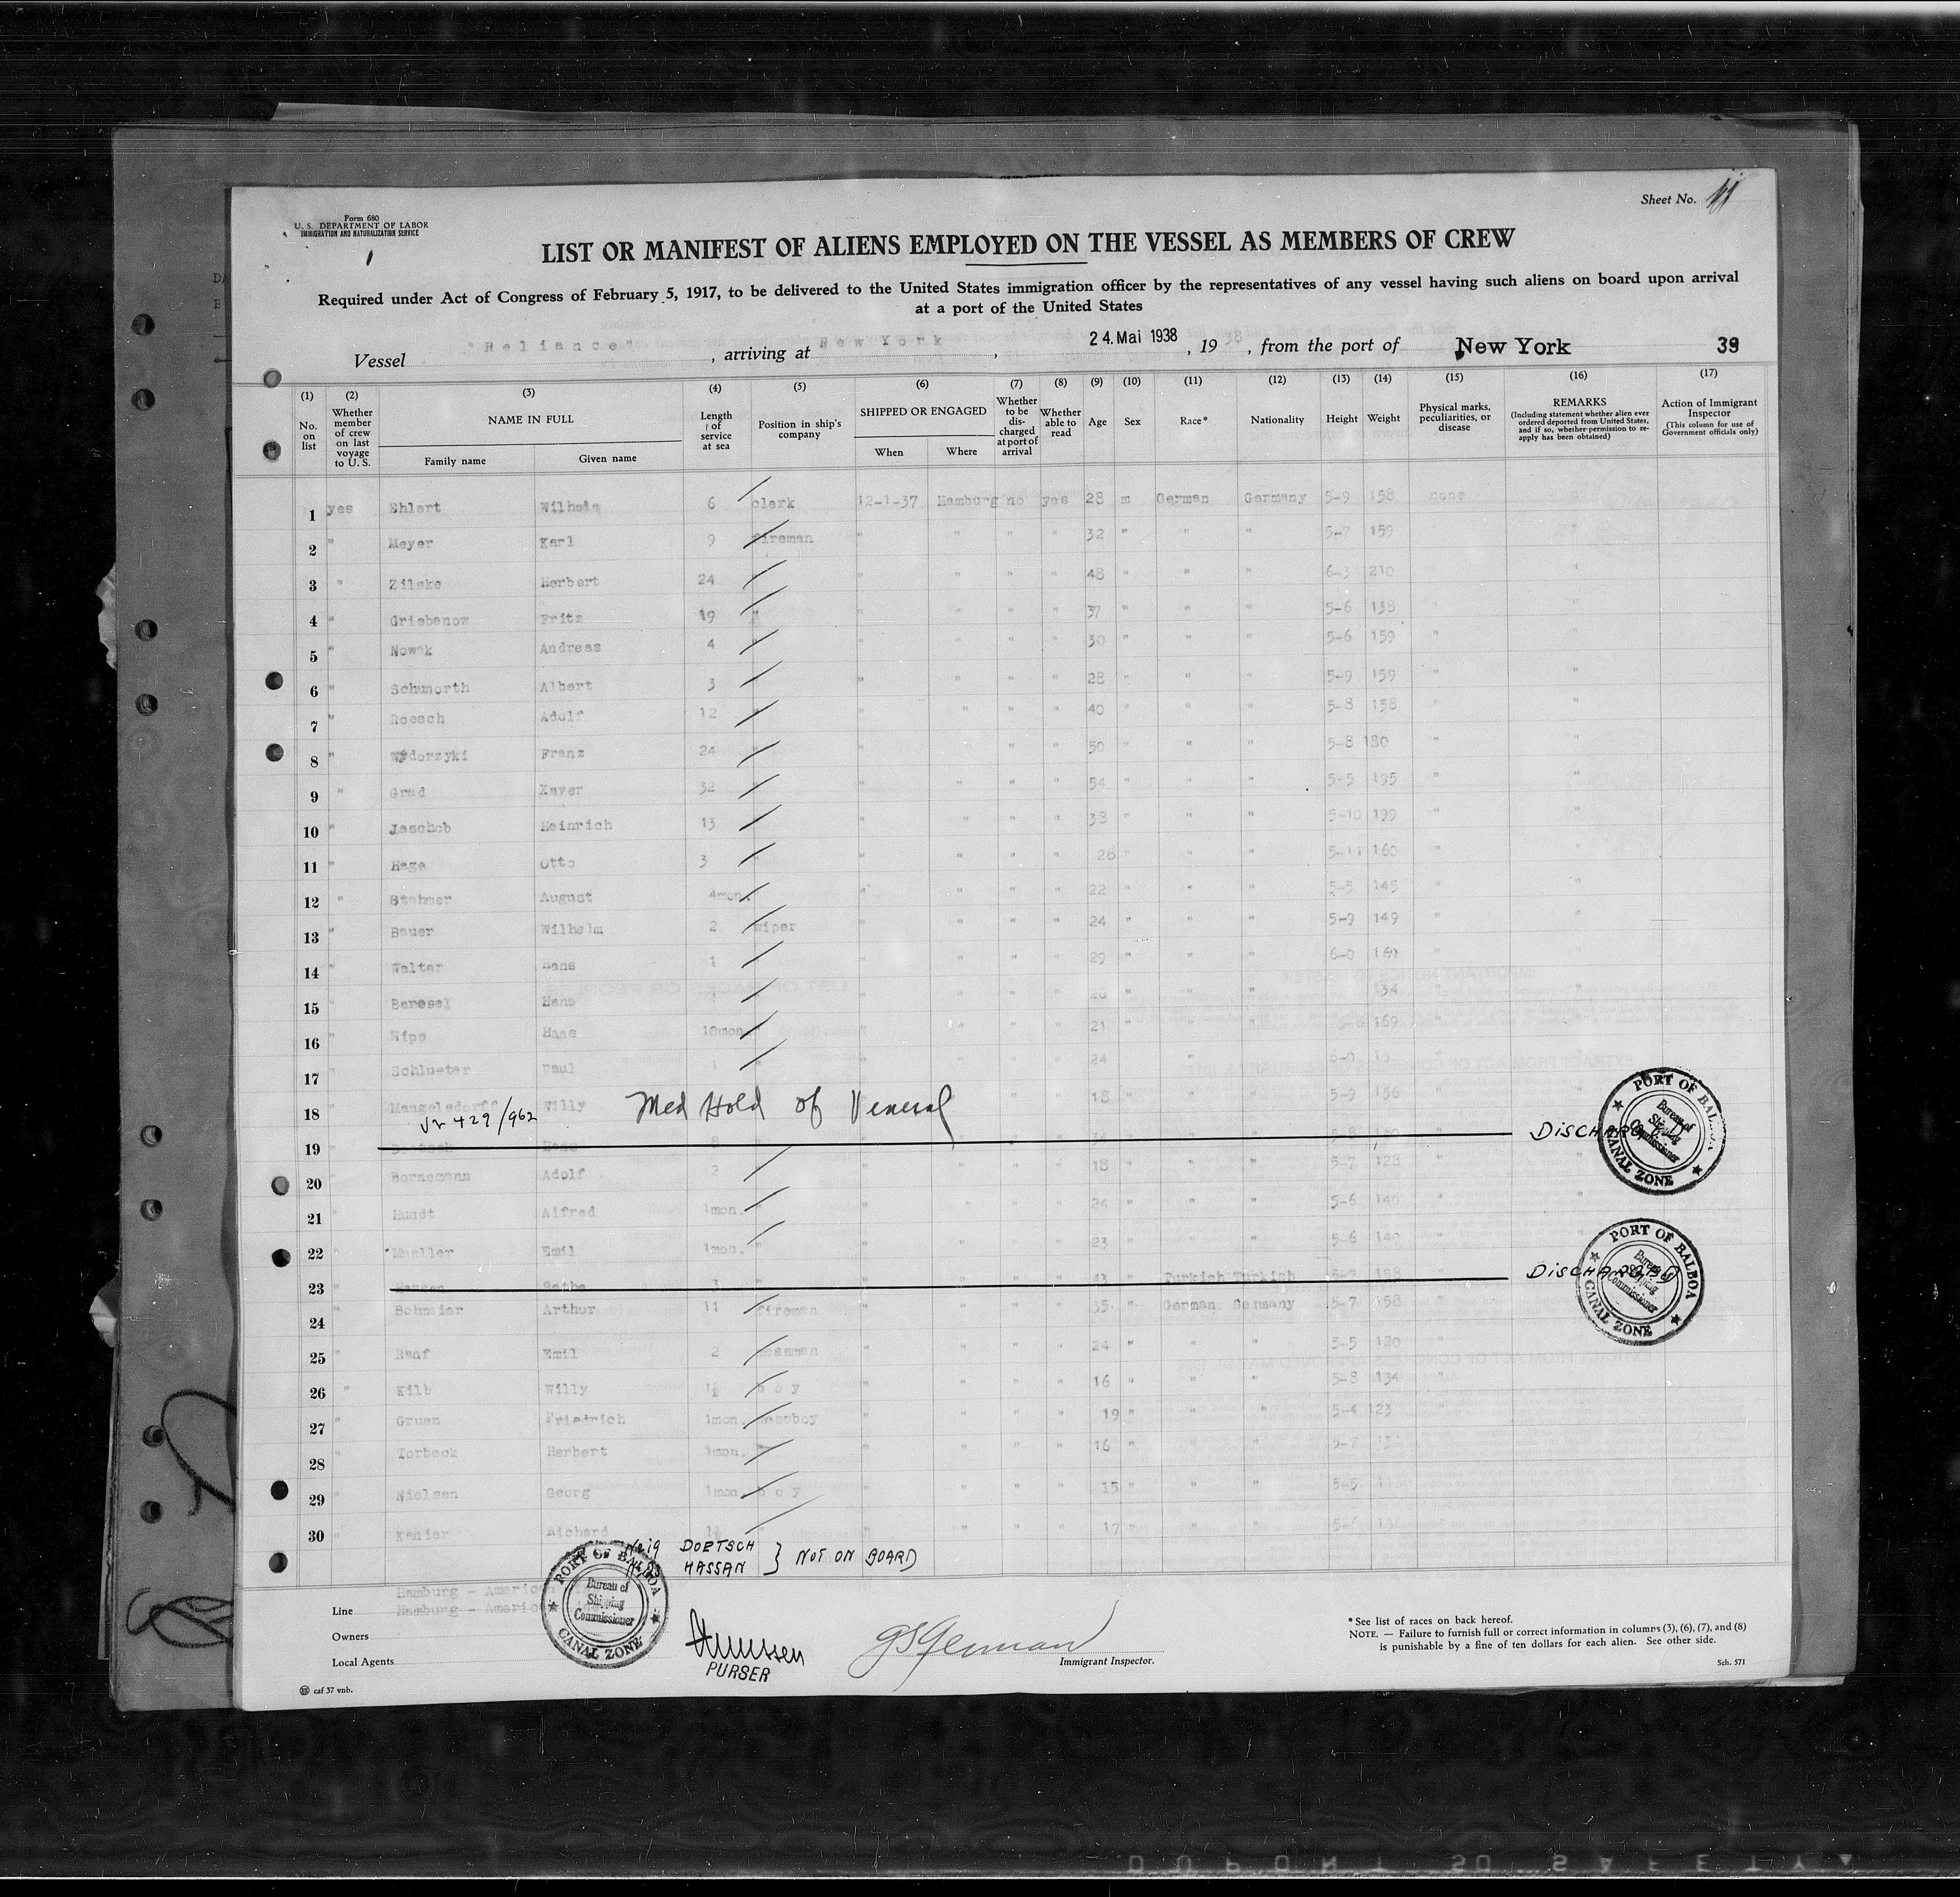 Sheet No. 11
Form 680
U. S. DEPARTMENT OF LABOR
IMMIGRATION AND NATURALIZATION SERVICE
LIST OR MANIFEST OF ALIENS EMPLOYED ON THE VESSEL AS MEMBERS OF CREW
Required under Act of Congress of February 5, 1917, to be delivered to the United States immigration officer by the representatives of any vessel having such aliens on board upon arrival
at a port of the United States
Vessel "Reliance", arriving at New York, 24. Mai 1938, 19 38, from the port of New York 39
(1) (2) (3) (4) (5) (6) (7) (8) (9) (10) (11) (12) (13) (14) (15) (16) (17)
No. on list
Whether member of crew on last voyage to U. S.
NAME IN FULL
Family name
Given name
Length of service at sea
Position in ship's company
SHIPPED OR ENGAGED
When
Where
Whether to be discharged at port of arrival
Whether able to read
Age
Sex
Race*
Nationality
Height
Weight
Physical marks, peculiarities, or disease
REMARKS
(Including statement whether alien ever ordered deported from United States, and if so, whether permission to reapply has been obtained)
Action of Immigrant Inspector
(This column for use of Government officials only)
1 yes Ehlert Wilhelm 6 clerk 12-1-37 Hamburg no yes 28 m German Germany 5-9 158 none
2 " Meyer Karl 9 fireman " " " " 32 " " " 5-7 159
3 " Zilske Herbert 24 " " " " 48 " " " 6-3 210 "
4 " Griebenow Fritz 19 " " " " " 37 " " " 5-6 138 " "
5 " Nowak Andreas 4 " " " " 30 " " " 5-6 159 " "
6 " Schmorth Albert 3 " " " " " 28 " " " 5-9 159 " "
7 " Roesch Adolf 12 " " " " 40 " " " 5-8 158 " "
8 " Wydorzyki Franz 24 " " " " 50 " " " 5-8 180 " "
9 " Grad Xaver 32 " " " " 54 " " " 5-5 195 " "
10 " Jaschob Heinrich 13 " " " " 38 " " " 5-10 199 " "
11 " Hage Otto 3 " " " " " 28 " " " 5-11 160 " "
12 " Stehmer August 4mon. " " " " " 22 " " " 5-5 145 " "
13 " Bauer Wilhelm 2 wiper " " " " 24 " " " 5-9 149 " "
14 " Walter Hans 1 " " " " " 29 " " " 6-0 "
15 " Hans " " " " "
16 " Wipp Hans 10mon. " " " " 21 " " " 169
17 " Schlueter Paul 1 " " " " 24 " 6-0
18 " Mangelsdorff Willy " " " " 18 " " " 5-9 156 "
vr 429/962 Med Hold of Veneral
19 DISCHARGED
20 " Bornemann Adolf 2 " " " " 18 " " " 5-7 128 "
21 " Hundt Alfred 1mon. " " " " 24 " " " 5-6 "
22 " Mueller Emil 1mon. " " " " " 23 " " " 5-6
23 " 3 Turkish Turkish DISCHARGED
24 " Bohmeier Arthur 11 fireman " " " " 35 " German Germany 5-7 158 "
25 " Ranf Emil 2 messman " " " " 24 " " " 5-5 120 "
26 " Kilb Willy 1½ boy " " " " 16 " " " 5-8 134 "
27 " Gruen Friedrich 1mon. messboy " " " " 19 " " " 5-4 123 "
28 " Torbeck Herbert 1mon. " " " " " 16 " " " 5-7
29 " Nielsen Georg 1mon. boy " " " " 15 " " " 5-5
30 " Richard " " " " " 17 " " "
DOETSCH
HASSAN } NOT ON BOARD
PORT OF BALBOA
Bureau of
Shipping
Commissioner
CANAL ZONE
PORT OF BALBOA
Bureau of
Shipping
Commissioner
CANAL ZONE
PORT OF BALBOA
Bureau of
Shipping
Commissioner
CANAL ZONE
Line Hamburg - American
Owners Hamburg - American
Local Agents
PURSER
Immigrant Inspector.
*See list of races on back hereof.
NOTE. — Failure to furnish full or correct information in columns (3), (6), (7), and (8)
is punishable by a fine of ten dollars for each alien. See other side.
Sch. 571
caf 37 vnb.
DUPONT SO SAFETY